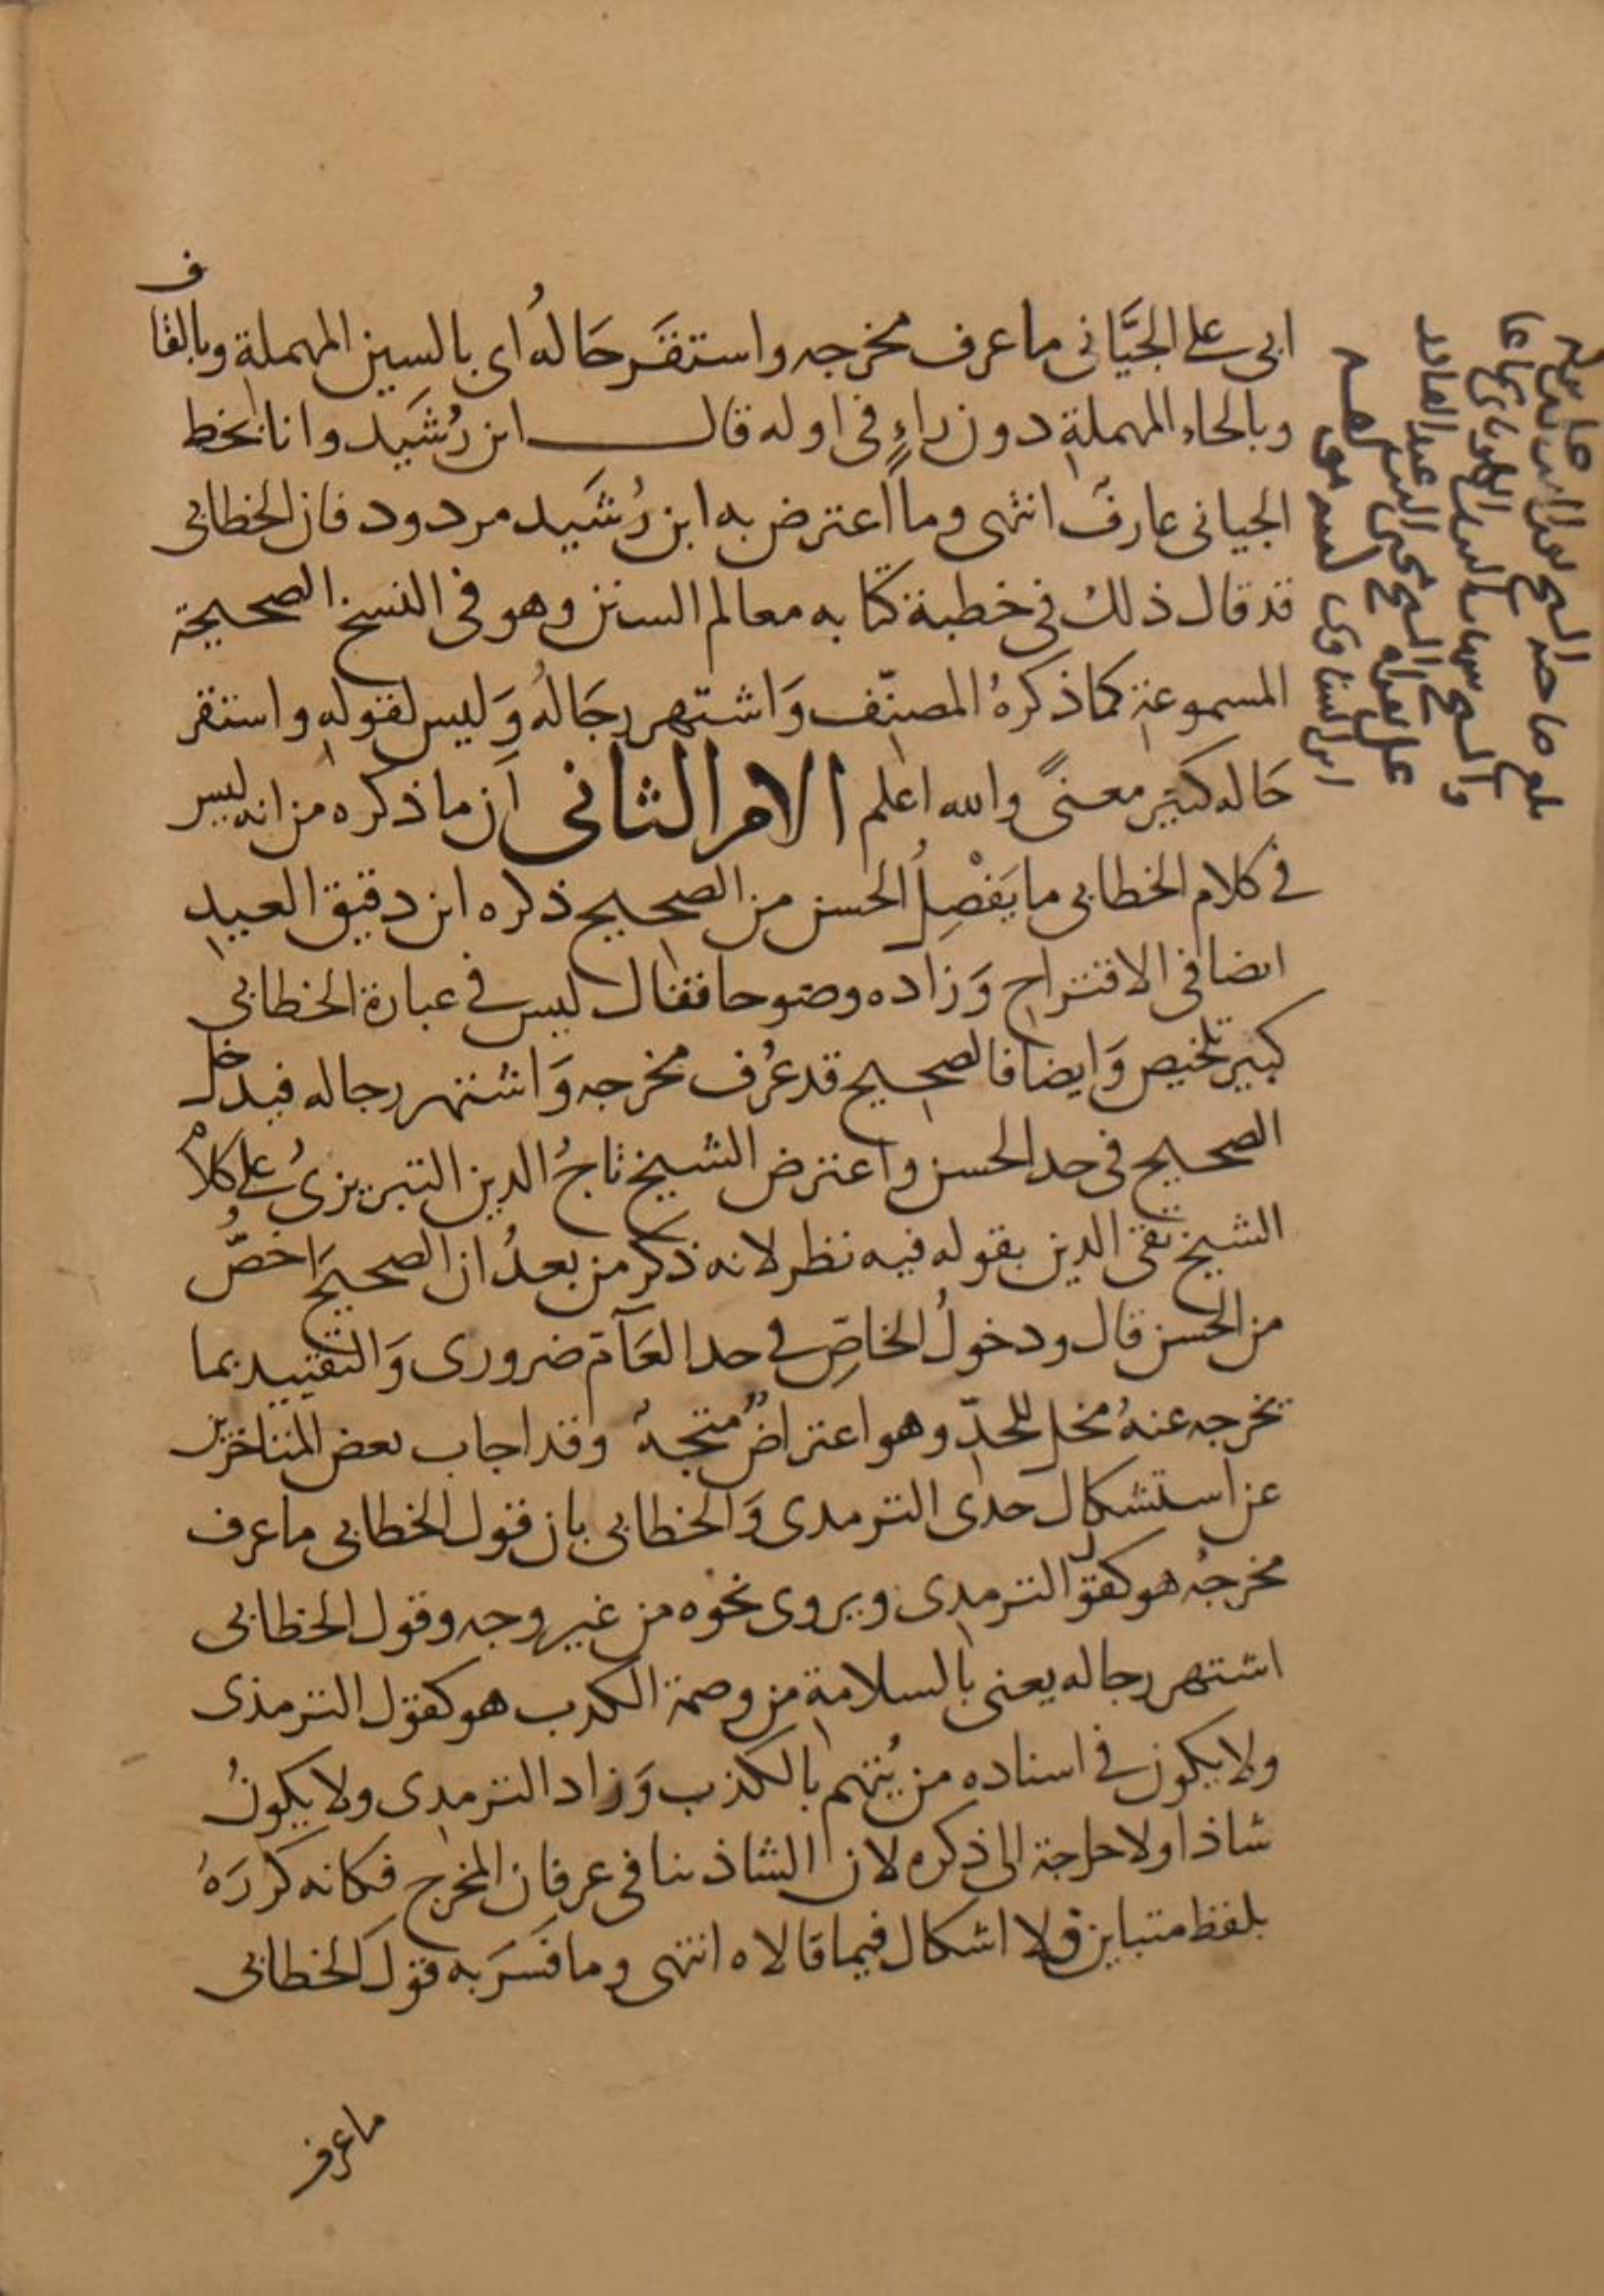 ابى على الجَيَّانى ماعرف مخرجه واستقَر حَالهُ اى بالسين المهملة وبالقاف
وبالحاء المهملة دون راءٍ فى اوله قال ابن رُشَيد وانا بخط
الجيانى عارف انتهى وما اعترض به ابن رُشَيد مردود فان الخطابى
قد قال ذلك فى خطبة كتابه معالم السنن وهو فى النسخ الصحيحة
المسموعة كما ذكرهُ المصنّف وَاشتهر رجَالهُ وَليس لقوله واستقر
حَاله كبير معنىً والله اعلم الامر الثانى اَن ما ذكره من انه ليس
فى كلام الخطابى ما يَفْصِلُ الحسن من الصحيح ذكره ابن دقيق العيد
ايضا فى الاقتراح وَزاده وضوحا فقال ليس فى عبارة الخطابى
كبير تلخيص وَايضا فالصحيح قد عُرف مخرجه وَاشتهر رجاله فيدخل
الصحيح فى حد الحسن واعترض الشيخ تاجُ الدين التبريزىُ على كلام
الشيخ تقى الدين بقوله فيه نظر لانه ذكر من بعدُ ان الصحيحَ اخصُّ
من الحسن قال ودخولُ الخاصِّ فى حد العَآمّ ضرورى وَالتقييد بما
يخرجه عنهُ مخل للحدّ وهو اعتراضٌ متجهٌ وقد اجاب بعض المتاخرين
عن استشكال حدى الترمدى وَالخطابى بان قول الخطابى ماعرف
مخرجُه هو كقول الترمدى ويروى نحوه من غير وجه وقول الخطابى
اشتهر رجاله يعنى بالسلامة من وصمة الكدب هو كقول الترمذى
ولا يكون فى اسناده من يُتهم بالكذب وَزاد الترمدى ولا يكونُ
شاذا ولا حاجة الى ذكره لان الشاذ ينافى عرفان المخرج فكانه كررَهُ
بلفظ متباين فلا اشكال فيما قالاه انتهى وما فسَرَ به قول الخطابى
ماعرف